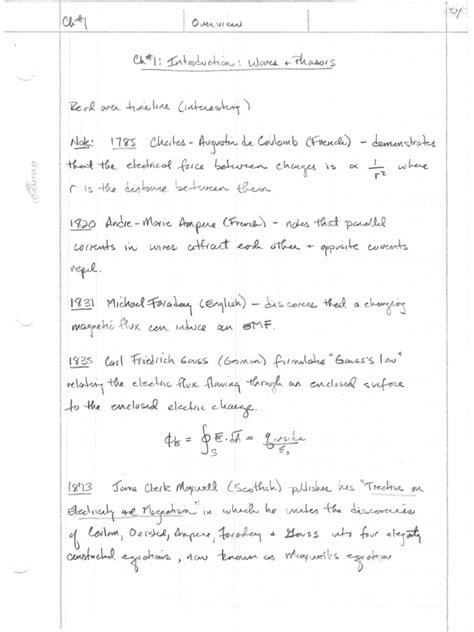 Ch#1 Overview
Ch#1: Introduction: Waves + Phasors
Read over timeline (interesting)
Note: 1785 Charles-Augustin de Coulomb (French) - demonstrates
that the electrical force between charges is ∝ 1/r² where
r is the distance between them
1820 Andre-Marie Ampere (French) - notes that parallel
currents in wires attract each other + opposite currents
repel.
1831 Michael Faraday (English) - discovers that a changing
magnetic flux can induce an EMF.
1835 Carl Friedrich Gauss (German) formulates "Gauss's law"
relating the electric flux flowing through an enclosed surface
to the enclosed electric charge.
= ∮ₛ E · dA = q inside / ε₀
1873 James Clerk Maxwell (Scottish) publishes his "Treatise on
Electricity and Magnetism" in which he unites the discoveries
of Coulomb, Oersted, Ampere, Faraday + Gauss into four elegantly
constructed equations, now known as Maxwell's equation